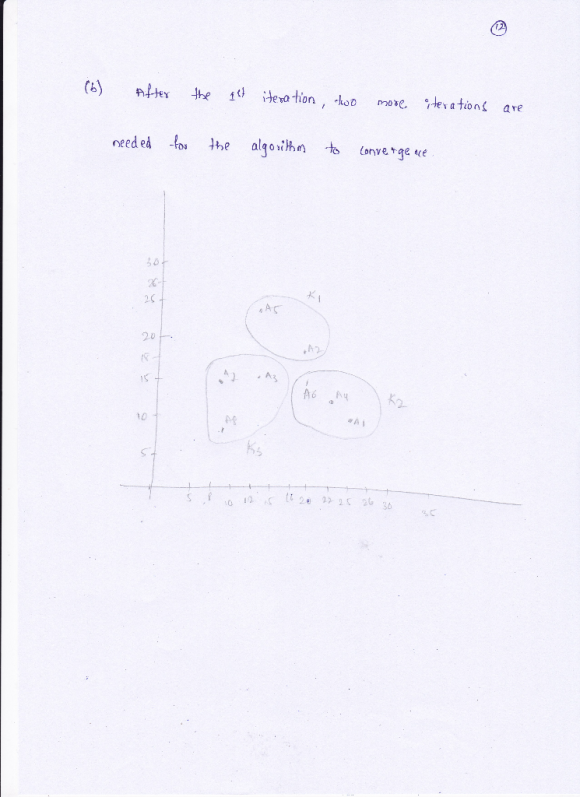 12
(b) After the 1st iteration, two more iterations are
needed for the algorithm to convergence.
30
26
20
18
15
10
5
K1
.A5
.A2
A7
.A3
A8
K3
A6
A4
A1
K2
5 8 10 12 15 18 20 22 25 26 30
35